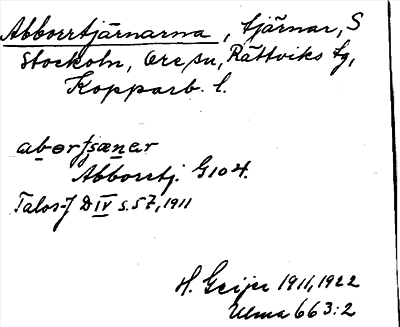 Abborrtjärnarna, tjärnar, S
Stockoln, Ore sn, Rättviks tg,
Kopparb. l.
Abborrtj. G104.
Talos-J D IV s. 57, 1911
H. Geijer 1911, 1922
Ulma 663:2